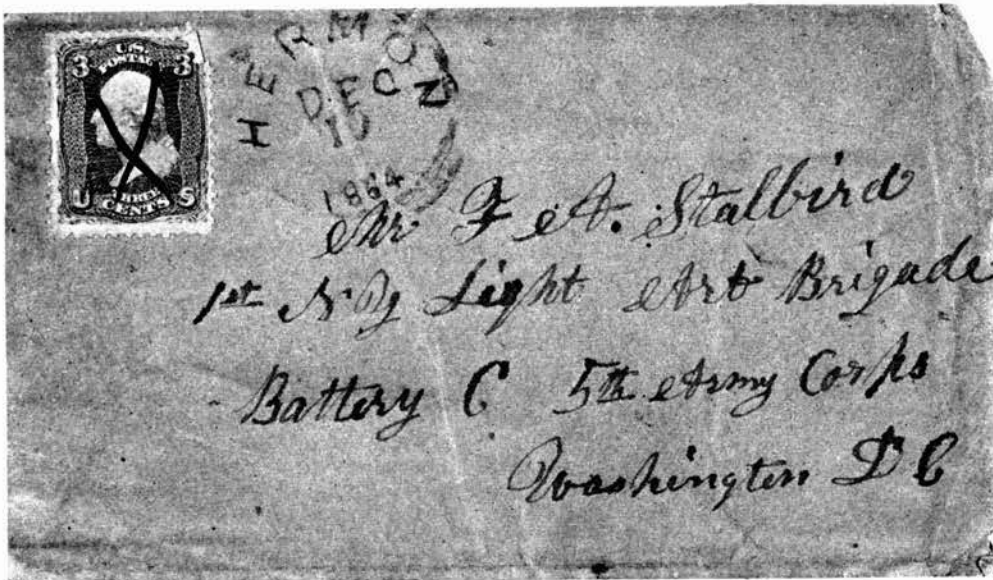 3 U.S. 3
POSTAGE
U THREE S
CENTS
HERMON
DEC
10
1864
Mr F A. Stalbird
1st N Y Light Art Brigade
Battery C 5th Army Corps
Washington D C